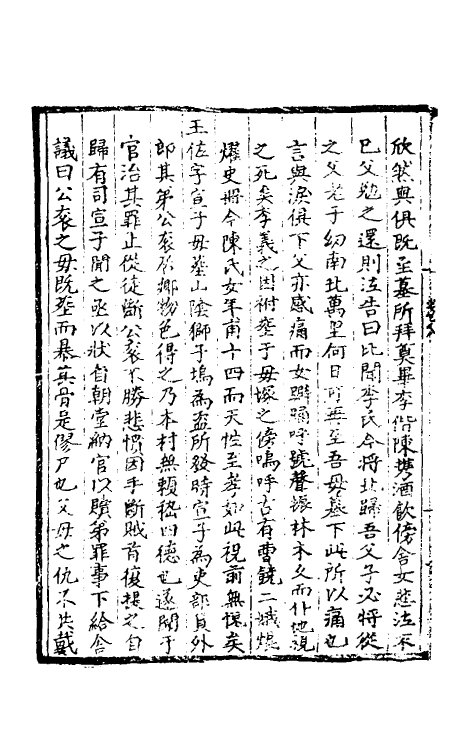 欣然與俱既至墓所拜奠畢李偕陳携酒飲傍舍女悲泣不
已父勉之還則泣告曰比聞李氏今將北歸吾父子必將從
之父老子幼南北萬里何日可再至吾母墓下此所以痛也
言與淚俱下父亦感痛而女擗踊呼號聲振林木久而仆地視
之死矣李義之因祔塟于母塚之傍嗚呼古有曹饒二娥焜
燿史冊今陳氏女年甫十四而天性至孝如此視前無愧矣
王佐字宣子母塟山陰獅子塢為盗所發時宣子為吏部員外
郎其弟公衮於鄉物色得之乃本村無賴嵇四德也遂聞于
官治其罪止從徒斷公衮不勝悲憤因手斷賊首復提之自
歸有司宣子聞之亟以狀自朝堂納官以贖弟罪事下給舍
議曰公衮之母既塟而暴其骨是僇尸也父母之仇不共戴